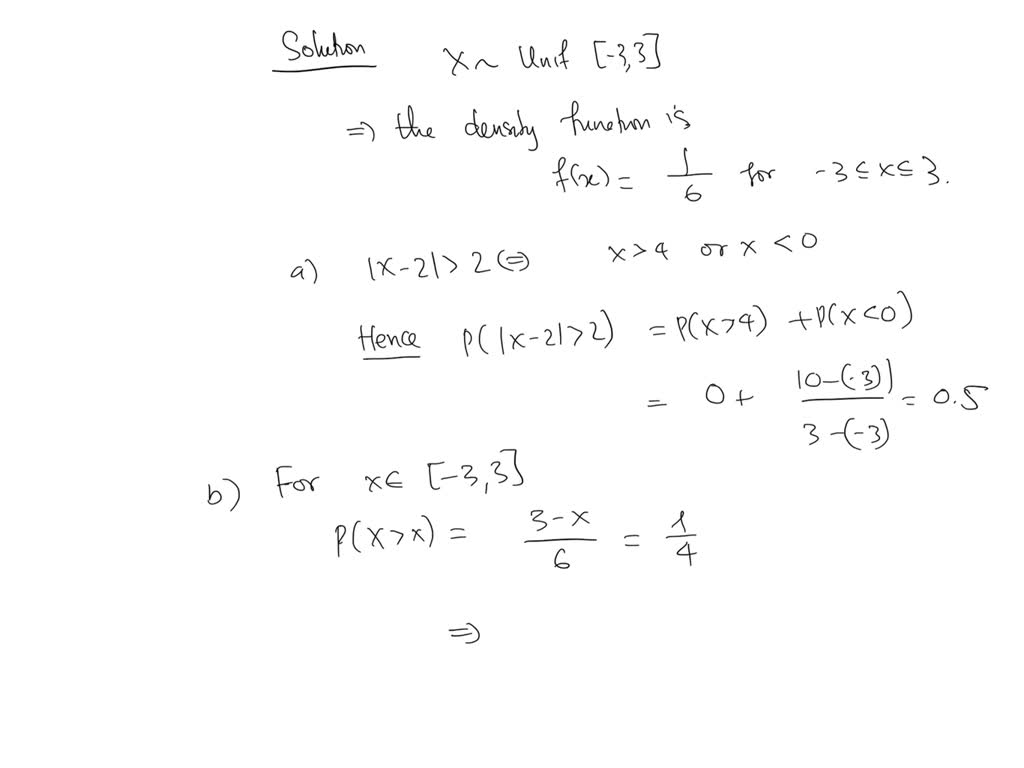 Solution X ~ Unif [-3,3]
⇒ the density function is
f(x) = 1/6 for -3 ≤ x ≤ 3.
a) |X-2| > 2 ⇔ x > 4 or x < 0
Hence P(|X-2| > 2) = P(X > 4) + P(X < 0)
= 0 + |0-(-3)|/3-(-3) = 0.5
b) For x ∈ [-3,3]
P(X > x) = 3-x/6 = 1/4
⇒